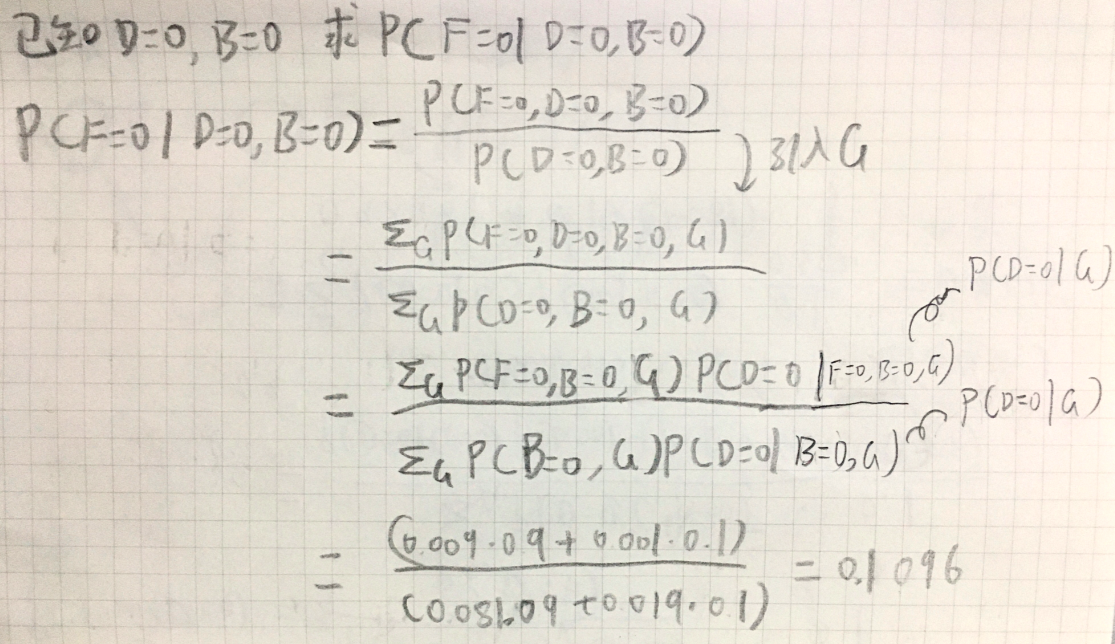 已知 D=0, B=0 求 P(F=0| D=0, B=0)
P(F=0| D=0, B=0) = P(F=0, D=0, B=0) / P(D=0, B=0) 引入 G
= Σ_G P(F=0, D=0, B=0, G) / Σ_G P(D=0, B=0, G)
= Σ_G P(F=0, B=0, G) P(D=0 | F=0, B=0, G) / Σ_G P(B=0, G) P(D=0| B=0, G)
P(D=0|G)
P(D=0|G)
= (0.009·0.9 + 0.001·0.1) / (0.081·0.9 + 0.019·0.1) = 0.1096